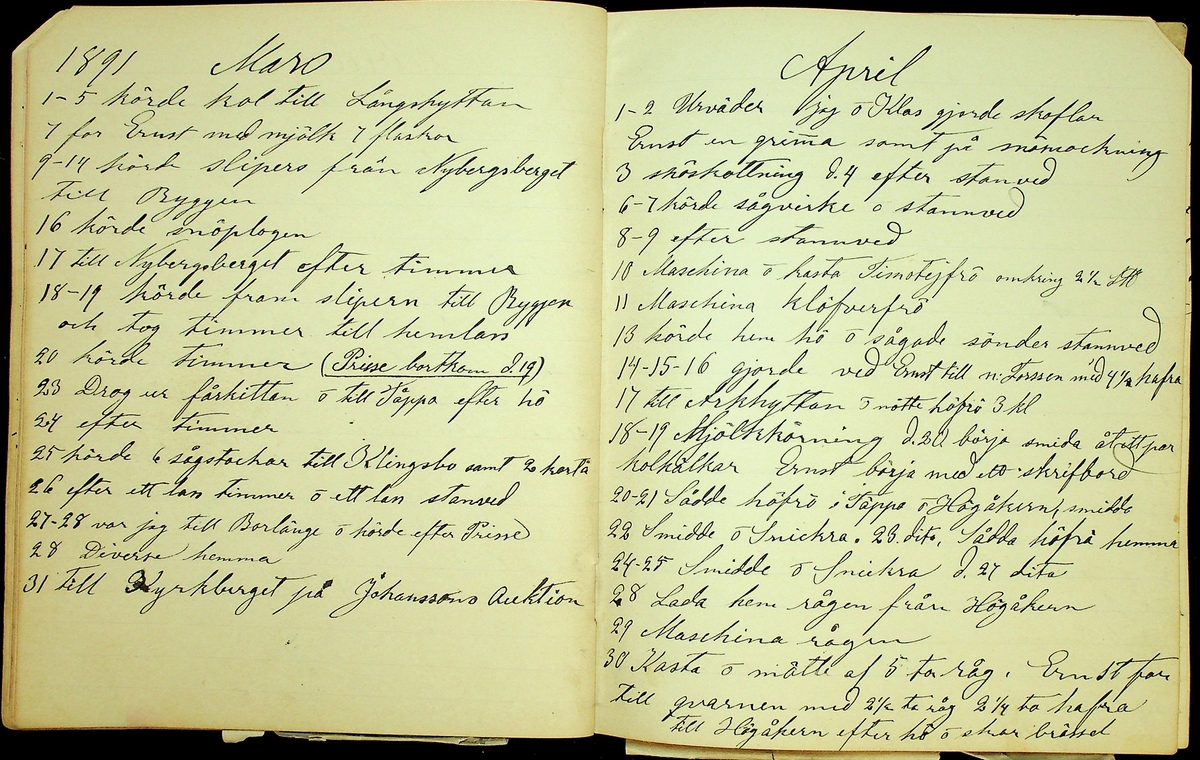 1891 Mars
1-5 körde kol till Långshyttan
7 for Ernst med mjölk 7 flaskor
9-14 körde slipers från Nybergsberget
till Byggen
16 körde snöplogen
17 till Nybergsberget efter timmer
18-19 körde fram slipern till Byggen
och tog timmer till hemlass
20 körde timmer (Prisse bortkom d.19)
23 Drog ur fårkittan o till Täppa efter hö
24 efter timmer
25 körde 6 sågstockar till Klingsbo samt 20
26 efter ett lass timmer o ett lass stanved
27-28 var jag till Borlänge o hörde efter Prisse
28 Diverse hemma
31 till Kyrkberget på Johanssons Auktion
April
1-2 Urväder jag o Klas gjorde skoflar
Ernst en grimma samt på snömockning
3 snöskottning d.4 efter stanved
6-7 körde sågvirke o stannved
8-9 efter stannved
10 Maschina o kasta Timotejfrö omkring 2½
11 Maschina klöfverfrö
13 körde hem hö o sågade sönder stannved
14-15-16 gjorde ved Ernst till n: Forssen med 4½ hafra
17 till Arkhyttan o mötte höfrö 3 kl
18-19 Mjölkkörning d.20 börja smida åt ett par
kolkälkar Ernst börja med ett skrifbord
20-21 Sådde höfrö i Täppa o Högåkern, smidde
22 Smidde o Snickra. 23. dito. Sådda höfrö hemma
24-25 Smidde o Snickra d. 27 dito
28 Lada hem rågen från Högåkern
29 Maschina rågen
30 Kasta o mätte af 5 ta råg. Ernst for
till qvarnen med 2½ ta råg 2¼ ta hafra
till Högåkern efter hö o skar